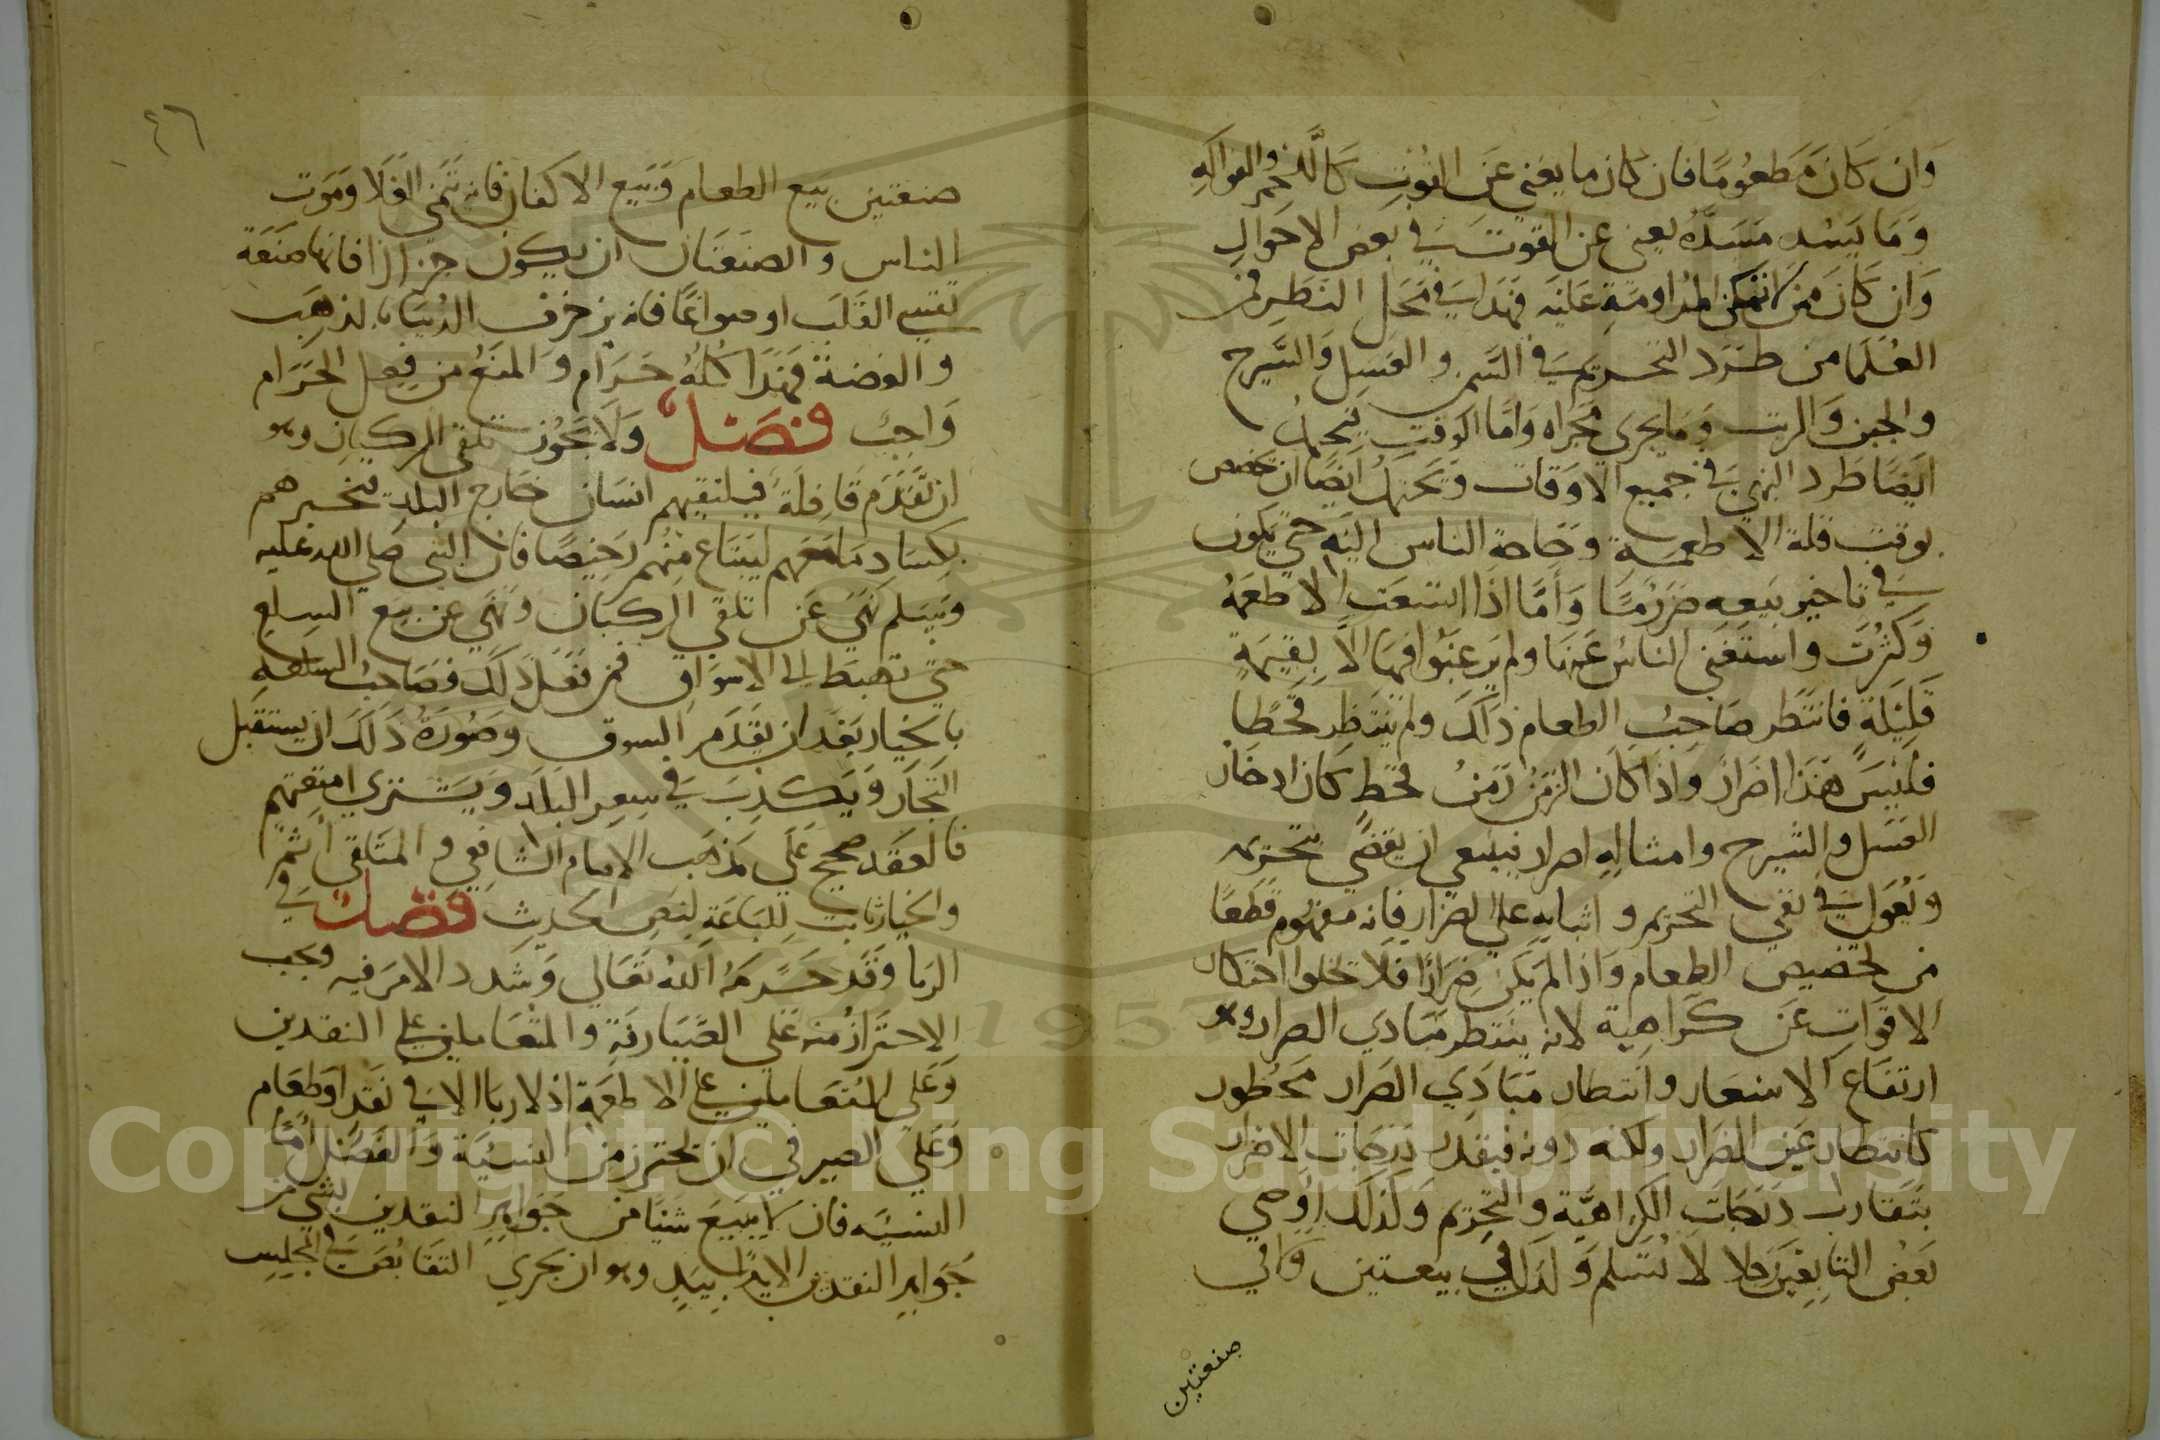 وان كان مطعوما فان كان ما يغني عن القوت كاللحم والفواكه
وما يسد مسده يعني عن القوت في بعض الاحوال
وان كان من لا تمكن المداومة عليه فهذا في محل النظر فمن
العلما من طرد التحريم في السمن والعسل والشيرج
والجبن والزيت وما يجري مجراه واما الوقت فيحتمل
ايضا طرد النهي في جميع الاوقات وتحتمل ايضا ان تخصص
بوقت قلة الاطعمة وحاجة الناس اليه حتي يكون
في تاخير بيعه ضررما واما اذا اتسعت الاطعمة
وكثرت واستغني الناس عنها ولم يرغبوا فيها الا بقيمة
قليلة فانتظر صاحب الطعام ذلك ولم ينتظر قحطا
فليس هذا اضرار واذا كان الزمن زمن قحط كان ادخار
العسل والشيرج وامثاله اضرار فينبغي ان يقضي بتحريمه
ويعول في نفي التحريم واثباته علي الضرار فانه مفهوم قطعا
من تخصيص الطعام واذا لم يكن ضرارا فلا تخلوا احتكار
الاقوات عن كراهية لانه ينتظر مبادي الضرار وهو
ارتفاع الاسعار وانتظار مبادي الضرار محظور
كانتظار عين الضرار ولكنه دونه فبقدر درجات الاضرار
يتقارب درجات الكراهية والتحريم ولذلك اوصي
بعض التابعين رجلا لا تسلم ولدك في بيعتين وفي
صنعتين
٤٦
صنعتين بيع الطعام وبيع الاكفان فانه تمني الغلا وموت
الناس والصنعتان ان يكون جزارا فانها صنعة
تقسي القلب او صواغا فانه يزخرف الدنيا بالذهب
والفضة فهذا كله حرام والمنع من فعل الحرام
واجب فصل ولا يجوز تلقي الركبان وهو
ان تقدم قافلة فيلتقيهم انسان خارج البلد فيخبرهم
بكساد ما معهم ليبتاع منهم رخيصا فان النبي صلي الله عليه
وسلم نهي عن تلقي الركبان ونهي عن بيع السلع
حتي تهبط الي الاسواق فمن فعل ذلك فصاحب السلعه
بالخيار بعد ان يقدم السوق وصورة ذلك ان يستقبل
التجار ويكذب في سعر البلد ويشتري امتعتهم
فالعقد صحيح علي مذهب الامام الشافعي والمتلقي اثم
والخيار ثابت للباعة لنص الحديث فصل في
الربا وقد حرمه الله تعالي وشدد الامر فيه ويجب
الاحتراز منه علي الصيارفة والمتعاملين علي النقدين
وعلي المتعاملين علي الاطعمة اذ لا ربا الا في نقد او طعام
وعلي الصيرفي ان تحترز من النسية والفضل اما
النسيه فان لا يبيع شيا من جواهر النقدين بشي من
جواهر النقدين الا يدا بيد وهو ان يجري التقابض في المجلس